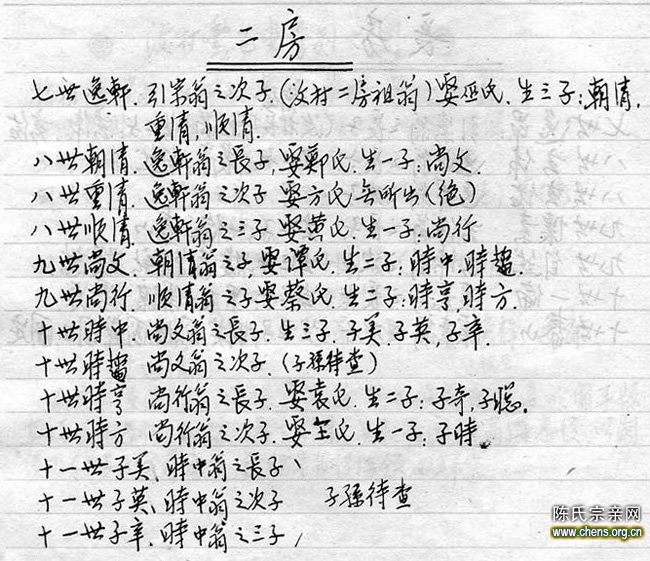 二房
七世逸軒. 引宗翁之次子.(汶村二房祖翁)娶巫氏. 生三子:朝清,
重清,順清.
八世朝清. 逸軒翁之長子,娶鄭氏. 生一子:尚文.
八世重清. 逸軒翁之次子 娶方氏 無所出(绝)
八世順清. 逸軒翁之三子 娶黄氏. 生一子:尚行
九世尚文. 朝清翁之子,娶譚氏. 生二子:時中,時
九世尚行. 順清翁之子娶蔡氏. 生二子:時亨,時方.
十世時中. 尚文翁之長子. 生三子. 子美,子英,子辛.
十世時 尚文翁之次子.(子孫待查)
十世時亨 尚行翁之長子. 娶袁氏. 生二子:子奇,子聪.
十世時方 尚行翁之次子. 娶 氏. 生一子:子時.
十一世子美,時中翁之長子、
十一世子英,時中翁之次子 子孫待查
十一世子辛. 時中翁之三子
陈氏宗亲网
www.chens.org.cn